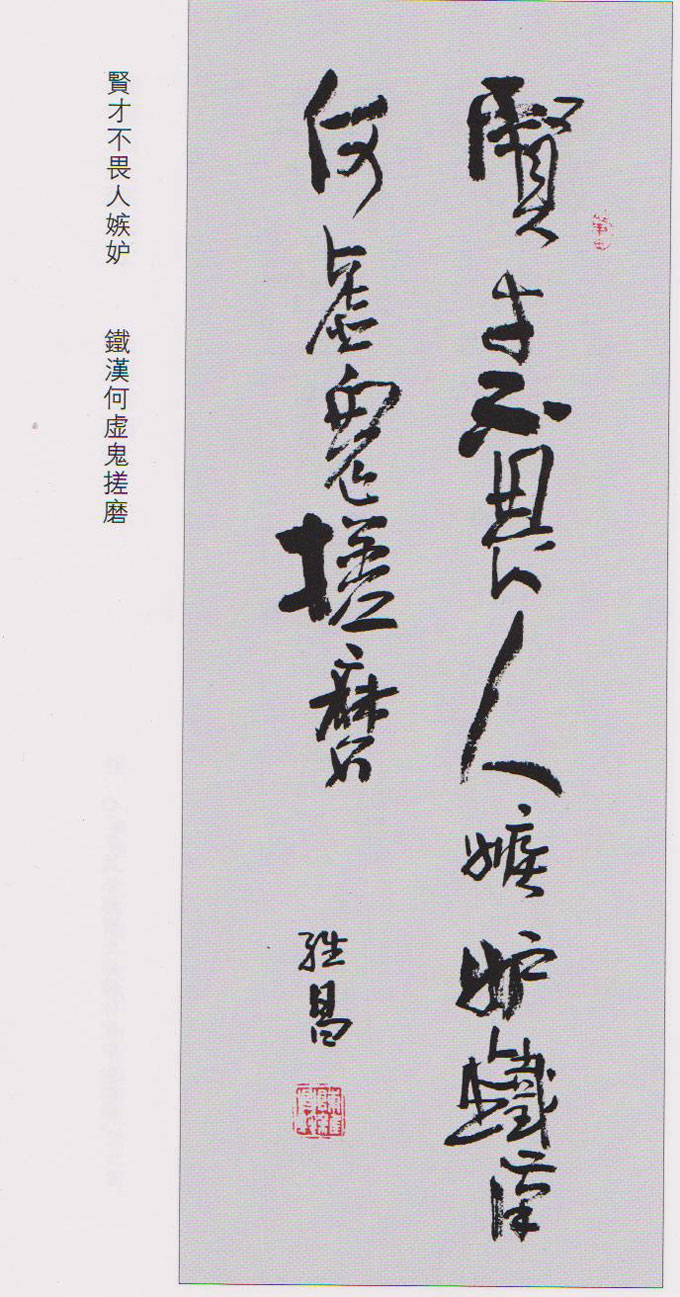 賢才不畏人嫉妒鐵漢
何虚鬼搓磨
昌
賢才不畏人嫉妒　鐵漢何虚鬼搓磨